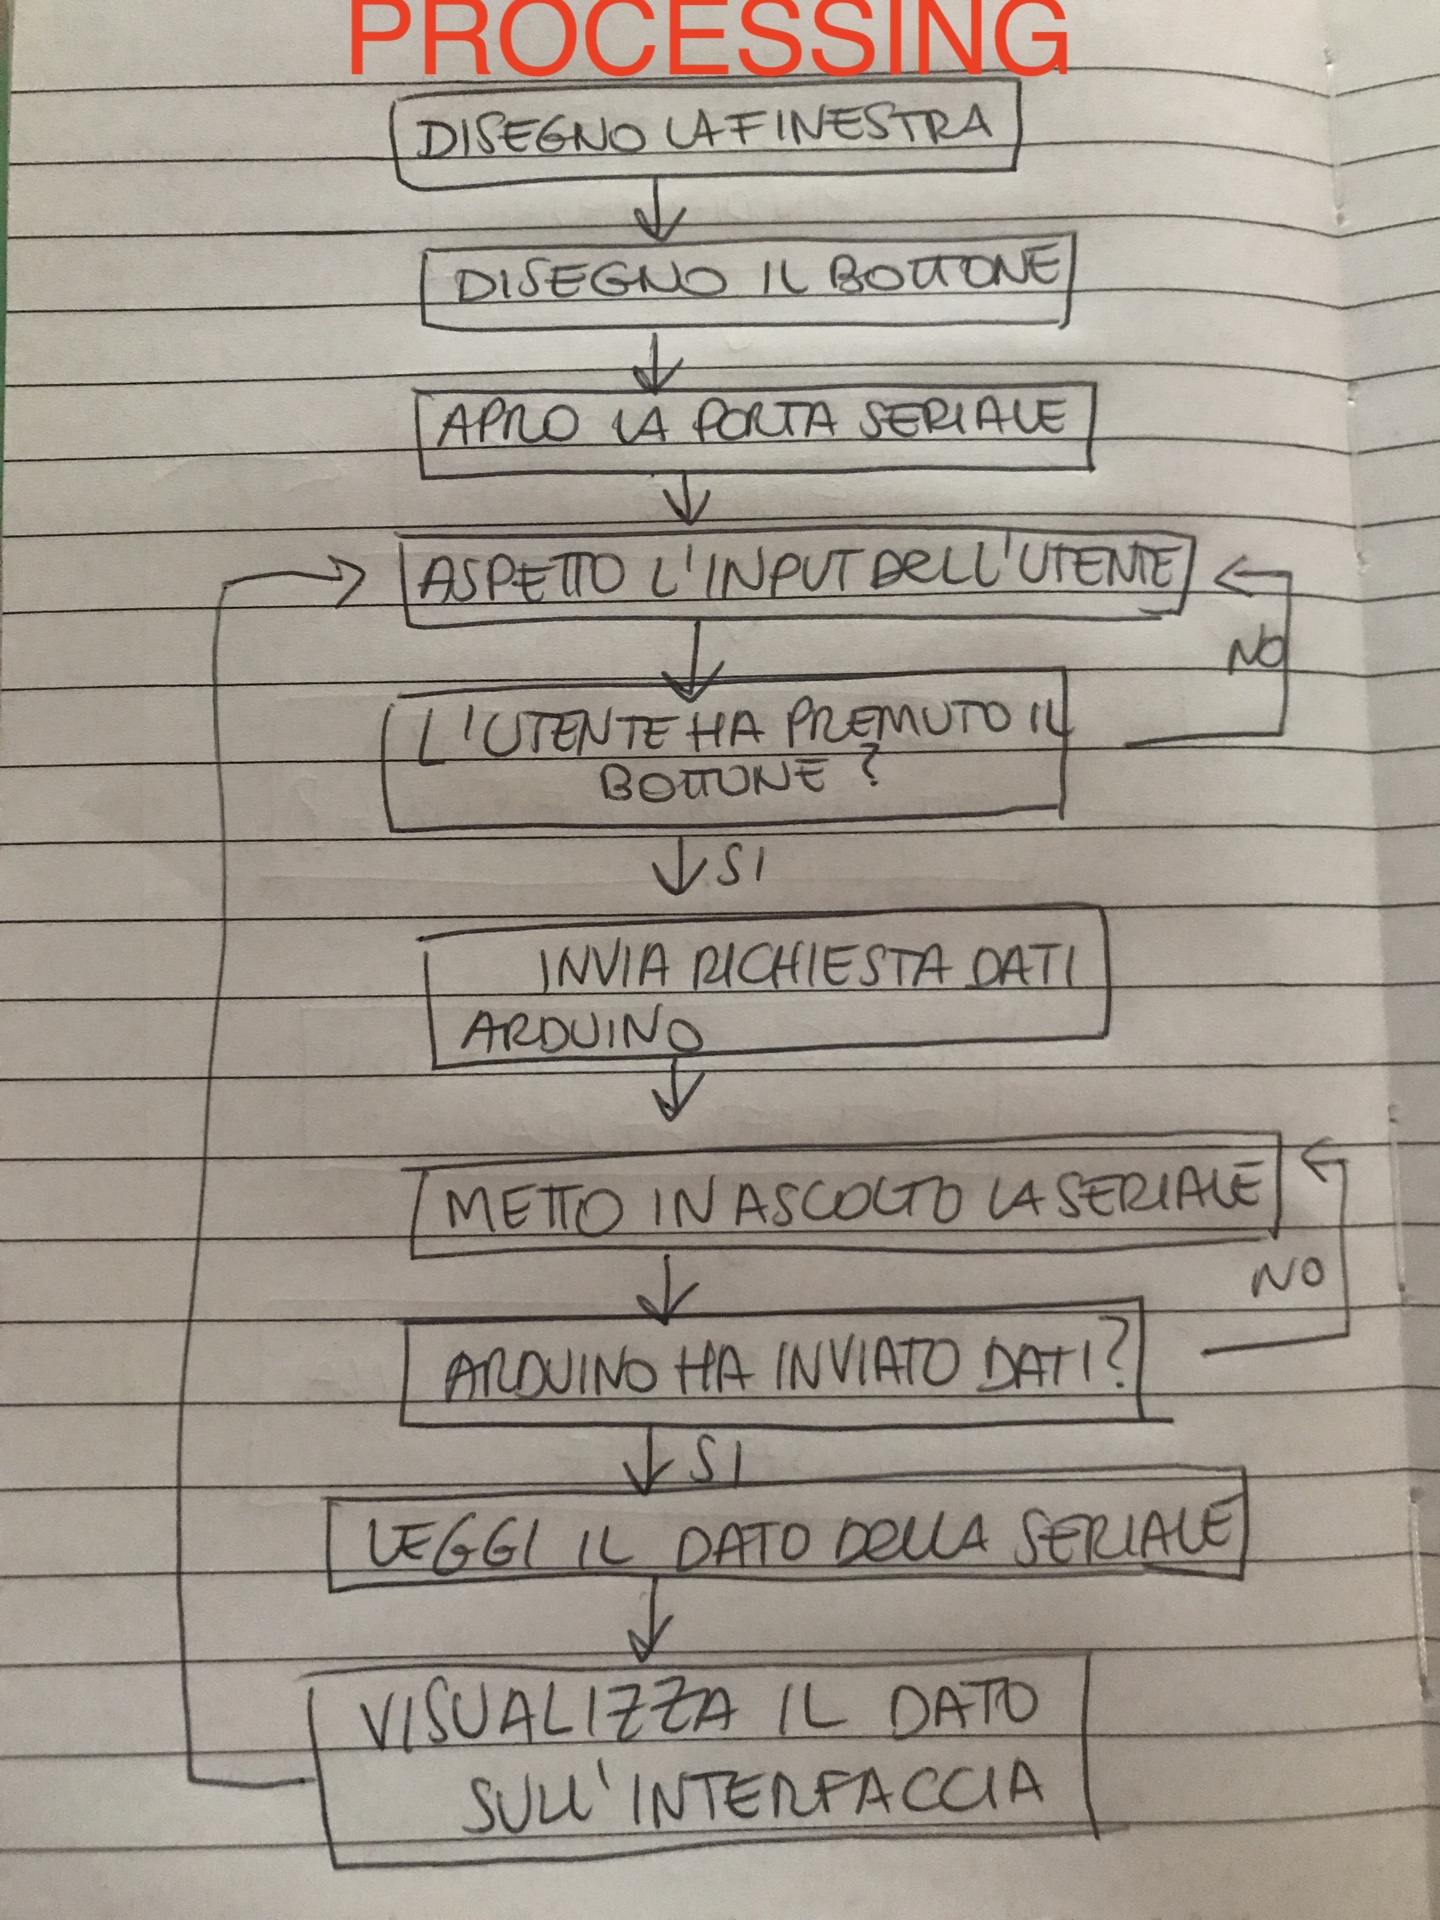 PROCESSING
DISEGNO LA FINESTRA
DISEGNO IL BOTTONE
APRO LA PORTA SERIALE
ASPETTO L'INPUT DELL'UTENTE
NO
L'UTENTE HA PREMUTO IL
BOTTONE ?
SI
INVIA RICHIESTA DATI
ARDUINO
METTO IN ASCOLTO LA SERIALE
NO
ARDUINO HA INVIATO DATI?
SI
LEGGI IL DATO DELLA SERIALE
VISUALIZZA IL DATO
SULL'INTERFACCIA